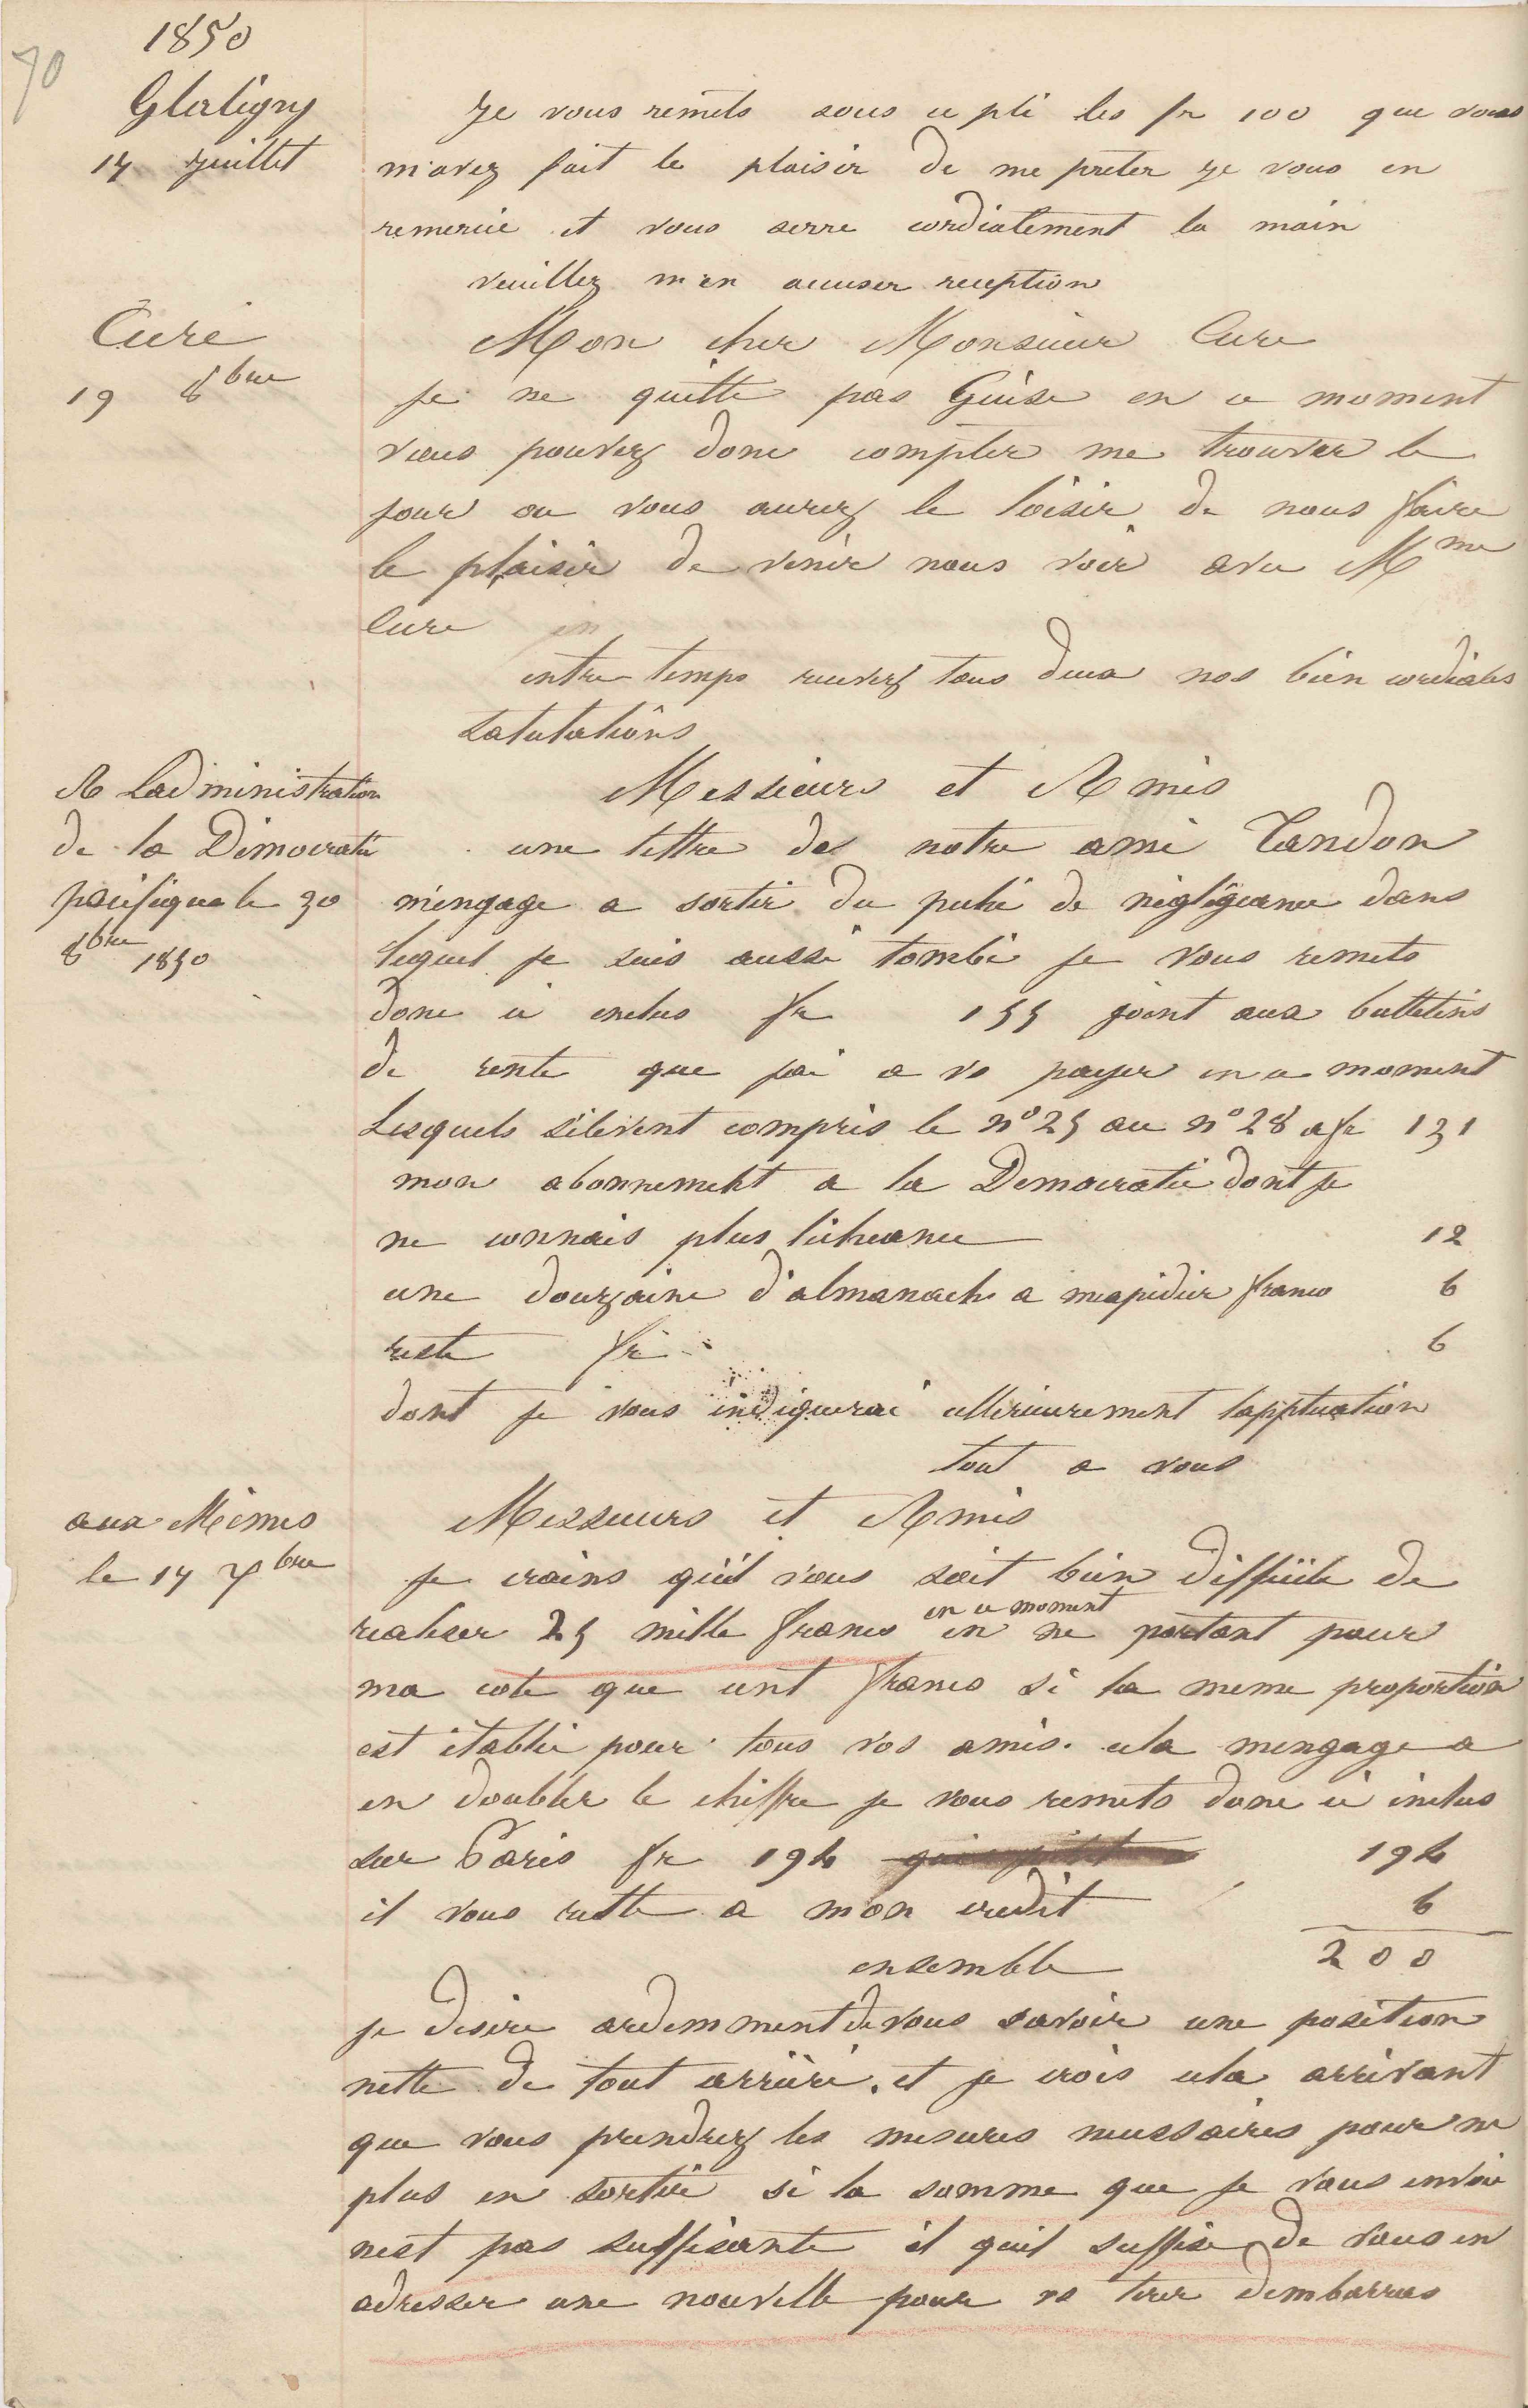 70
1850
Glatigny
17 Juillet
Je vous remets sous ce pli les fr 100 que vous
m'avez fait le plaisir de me preter Je vous en
remercie et vous serre cordialement la main
veuillez m'en accuser reception
Cure
19 8bre
Mon cher Monsieur Cure
Je ne quitte pas Guise en ce moment
vous pouvez donc compter me trouver le
jour ou vous aurez le loisir de nous faire
le plaisir de venir nous voir avec Mme
Cure
entre temps recevez tous deux nos bien cordiales
salutations
A Ladministration
de la Démocratie
pacifique le 30
8bre 1850
Messieurs et Amis
une lettre de notre ami Tandon
m'engage a sortir du peché de négligeance dans
lequel je suis aussi tombé je vous remets
donc ci inclus fr 155 joint aux bulletins
de rente que jai a vs payer en ce moment
Lesquels s'élèvent compris le n° 25 au n° 28 a fr 131
mon abonnement a la Democratie dont je
ne connais plus l'écheance 12
une douzaine d'almanachs a mexpédier franco 6
reste fr 6
dont je vous indiquerai ultérieurement lapplication
tout a vous
aux Mêmes
le 17 Xbre
Messieurs et Amis
Je crains qu'il vous soit bien difficile de
realiser 25 mille francs en ce moment en ne portant pour
ma cote que cent francs si la meme proportion
est établie pour tous vos amis. cela mengage a
en doubler le chiffre je vous remets donc ci inclus
sur Paris fr 194 194
il vous reste a mon credit 6
ensemble 200
je desire ardemment de vous savoir une position
nette de tout arriéré. et je crois cela arrivant
que vous prendrez les mesures necessaires pour ne
plus en sortir si la somme que je vous envoie
nest pas suffisante il quil suffise de vous en
adresser une nouvelle pour vs tirer dembarras